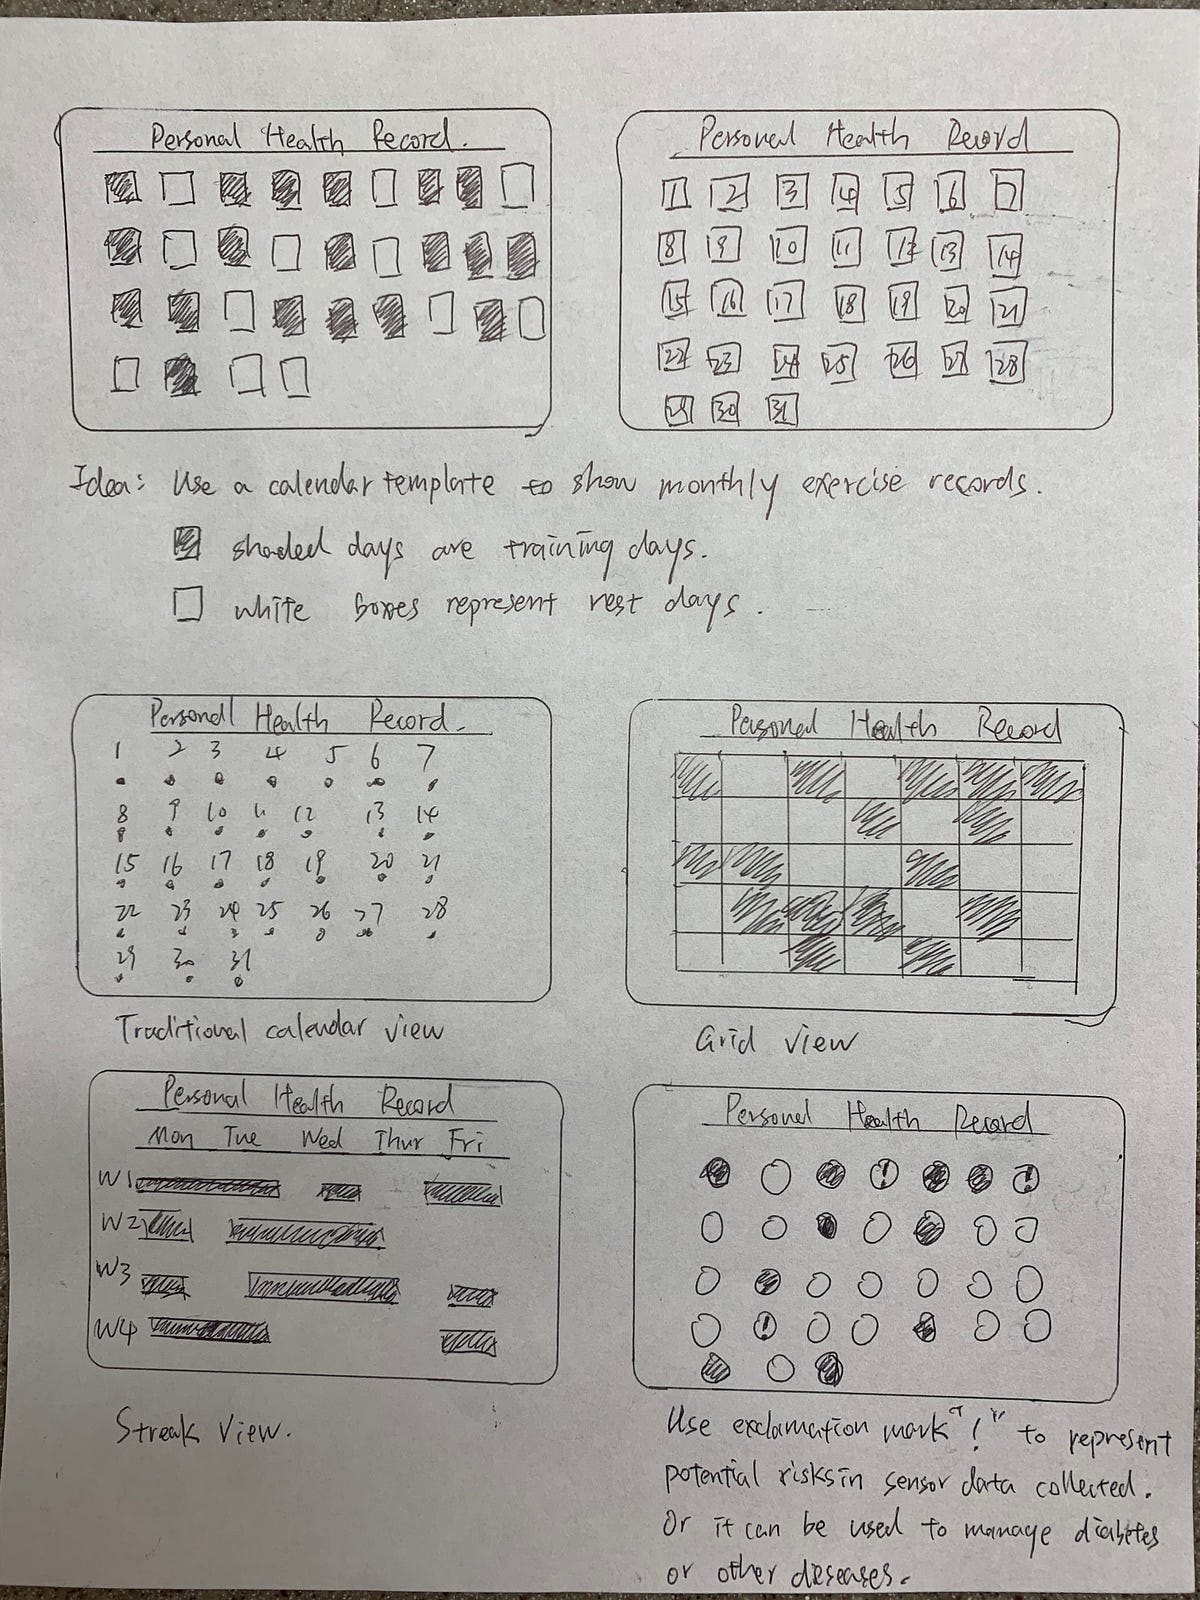 Personal Health Record.
Personal Health Record
1 2 3 4 5 6 7
8 9 10 11 12 13 14
15 16 17 18 19 20 21
22 23 24 25 26 27 28
29 30 31
Idea: Use a calendar template to show monthly exercise records.
shaded days are training days.
white boxes represent rest days.
Personal Health Record.
1 2 3 4 5 6 7
8 9 10 11 12 13 14
15 16 17 18 19 20 21
22 23 24 25 26 27 28
29 30 31
Traditional calendar view
Personal Health Record
Grid view
Personal Health Record
Mon Tue Wed Thur Fri
W1
W2
W3
W4
Streak View.
Personal Health Record
! !
!
Use exclamation mark "!" to represent
potential risks in sensor data collected.
Or it can be used to manage diabetes
or other diseases.